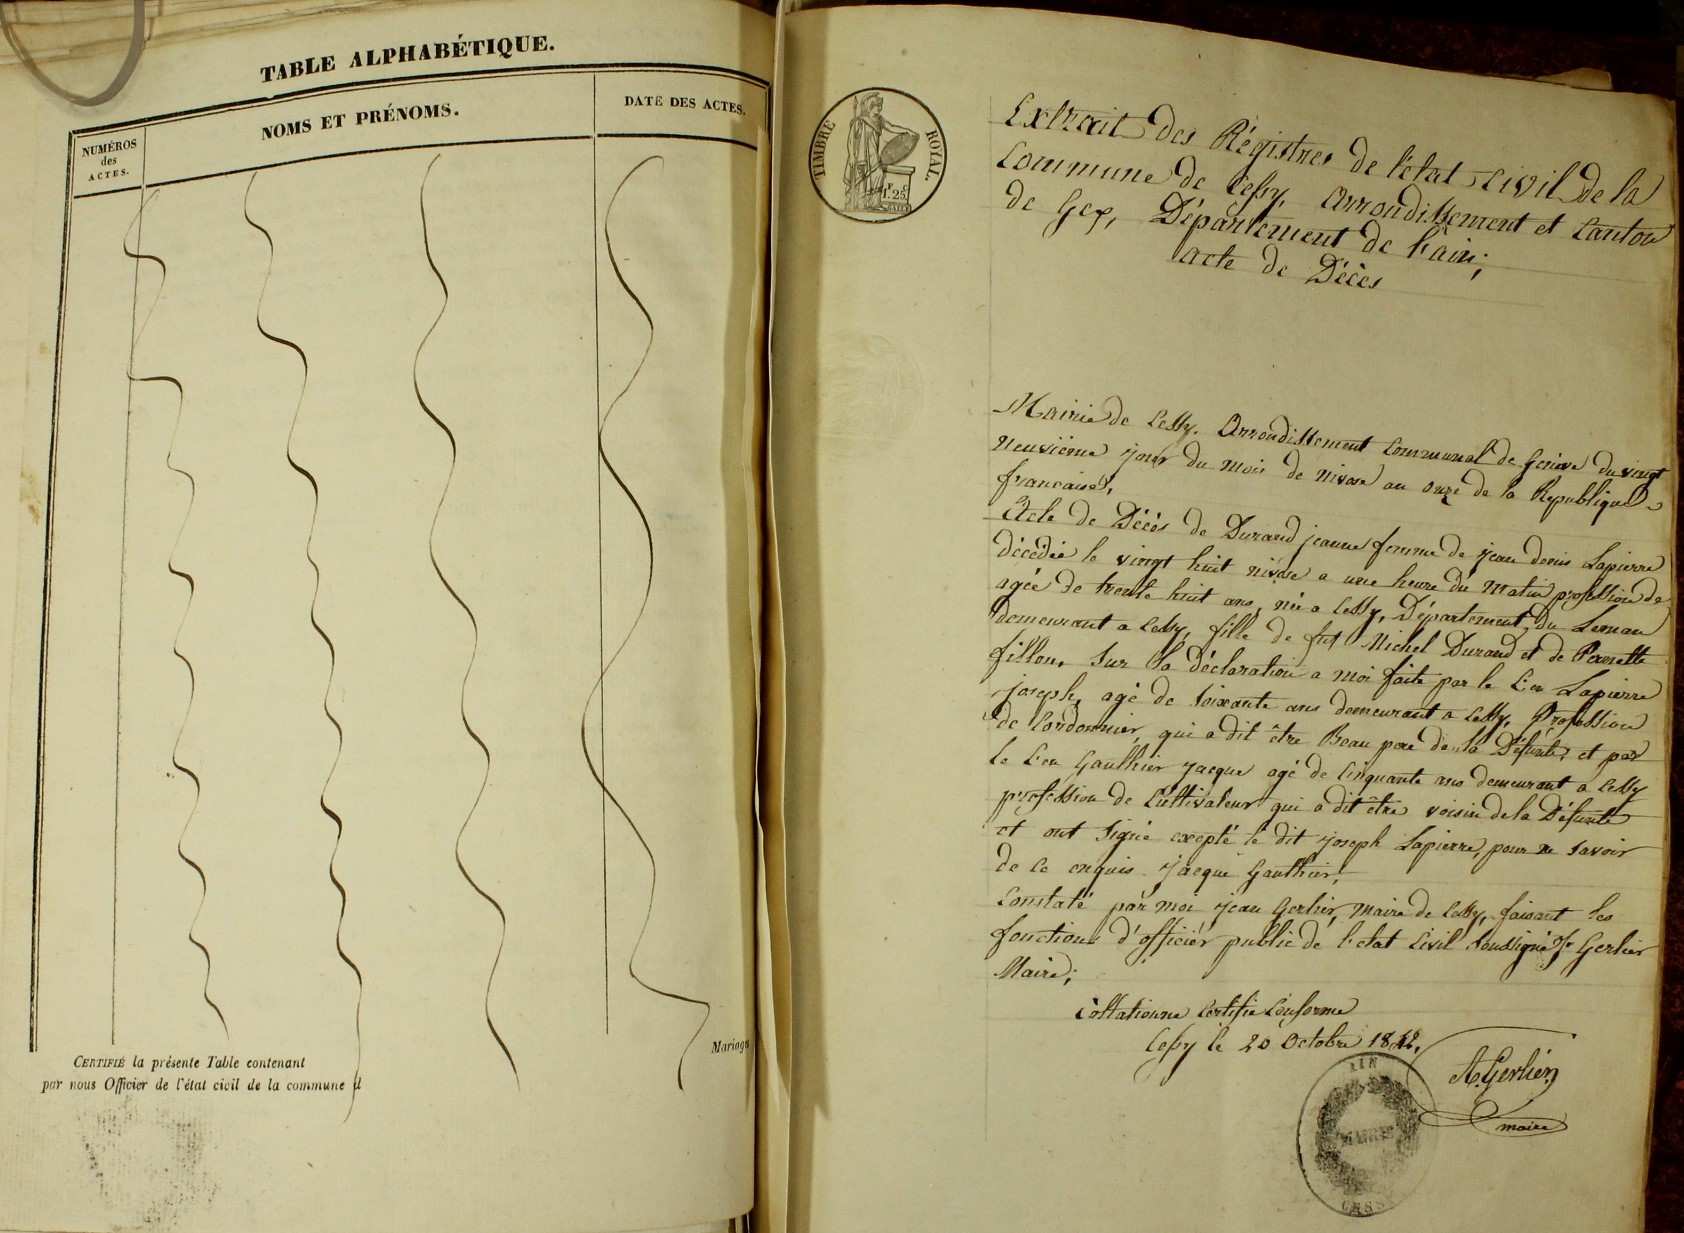 TABLE ALPHABÉTIQUE.
NUMÉROS
des
ACTES.
NOMS ET PRÉNOMS.
DATE DES ACTES.
CERTIFIÉ la présente Table contenant
par nous Officier de l'état civil de la commune d
Mariage
TIMBRE ROYAL.
1.F 25.C
Extrait des Régistres de l'état civil de la
Commune de Cessy, arrondissement et Canton
de Gex, Département de l'ain;
acte de Décès
Mairie de Cessy. Arrondissement Communal de Genève du vingt
neuvième jour du mois de nivose an onze de la Republique
française,
Acte de Décés de Durand jeanne femme de jean denis Lapierre
décédée le vingt huit nivose a une heure du matin profession de
agée de trente huit ans, née a Cessy, Département du Leman
demeurant a Cessy, fille de fut Michel Durand et de Pernette
fillon. Sur la déclaration a moi faite par le Cen Lapierre
joseph, agé de soixante ans demeurant a Cessy, Profession
de Cordonnier, qui a dit être Beau pere de la Défunte, et par
le Cen Gauthier jacque agé de Cinquante ans demeurant a Cessy
profession de Cultivateur qui a dit être voisin de la Défunte
et ont signé exepté le dit joseph Lapierre, pour ne savoir
de ce enquis jacque Gauthier,
Constaté par moi jean Gerlier, maire de Cessy, faisant les
fonctions d'officiér public de l'etat Civil soussigné Jn Gerlier
Maire;
Collationne Certifié Conforme
Cessy le 20 Octobre 1842.
A. Gerlier
maire
AIN
MAIRIE
CESS